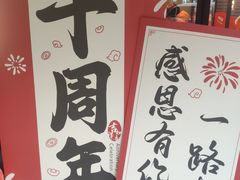 十周年
感恩有你
一路